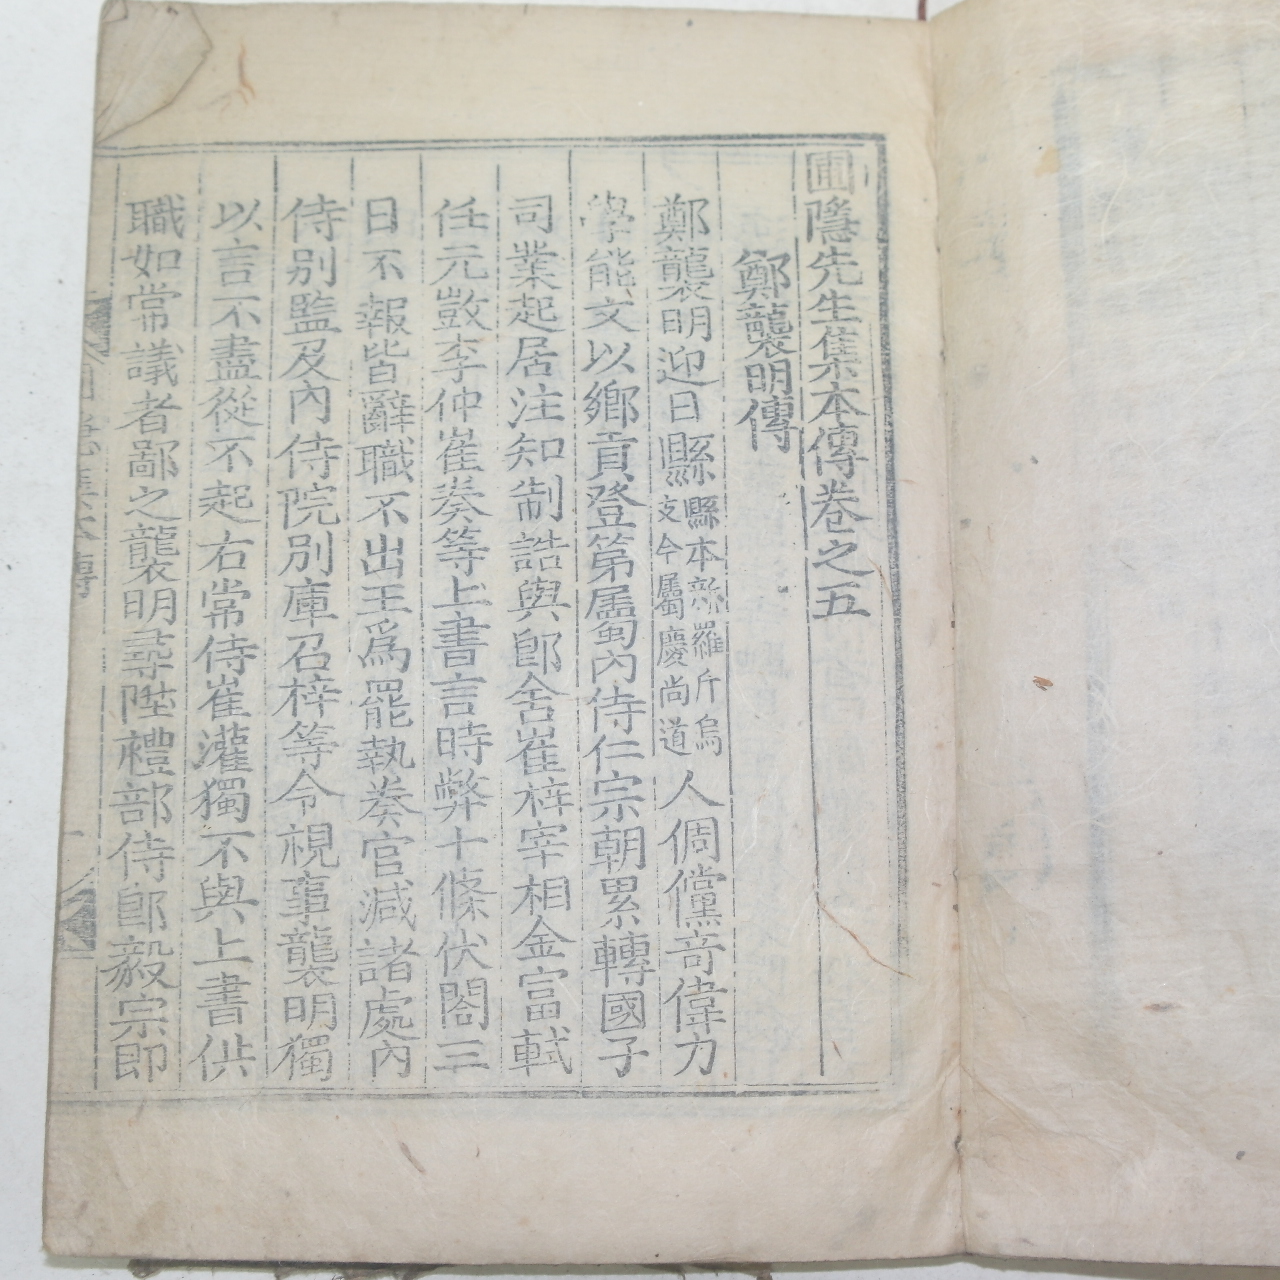 圃隱先生集本傳卷之五
鄭襲明傳
鄭襲明迎日縣縣本新羅斤烏支今屬慶尚道人倜儻奇偉力
學能文以鄉貢登第屬內侍仁宗朝累轉國子
司業起居注知制誥與郎舍崔梓宰相金富軾
任元敱李仲崔奏等上書言時弊十條伏閤三
日不報皆辭職不出王爲罷執奏官減諸處內
侍別監及內侍院別庫召梓等令視事襲明獨
以言不盡從不起右常侍崔灌獨不與上書供
職如常議者鄙之襲明尋陞禮部侍郎毅宗即